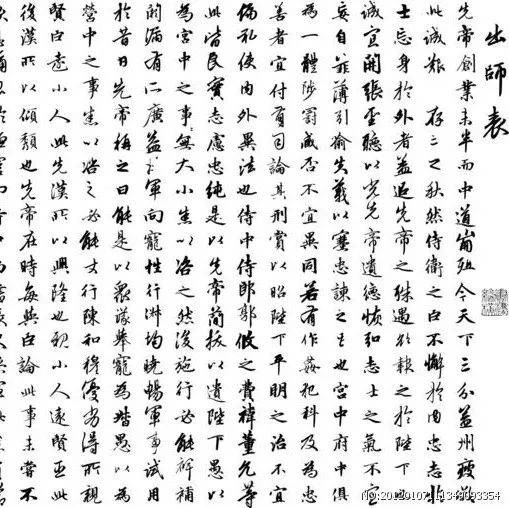 出師表
先帝創業未半而中道崩殂今天下三分益州疲敝
此誠 存亡之秋然侍衛之臣不懈於內忠志
士忘身於外者蓋追先帝之殊遇欲報之於陛下也
誠宜開張聖聽以光先帝遺德恢志士之氣不宜
妄自菲薄引喻失義以塞忠諫之路也宮中府中俱
為一體陟罰臧否不宜異同若有作姦犯科及為忠
善者宜付有司論其刑賞以昭陛下平明之治不宜
偏私使內外異法也侍中侍郎郭攸之費禕董允等
此皆良實志慮忠純是以先帝簡拔以遺陛下愚以
為宮中之事無大小悉以咨之然後施行必能裨補
闕漏有所廣益將軍向寵性行淑均曉暢軍事試用
於昔日先帝稱之曰能是以眾議舉寵為督愚以為
營中之事悉以咨之必能使行陳和穆優劣得所親
賢臣遠小人此先漢所以興隆也親小人遠賢臣此
後漢所以傾頹也先帝在時每與臣論此事未嘗不